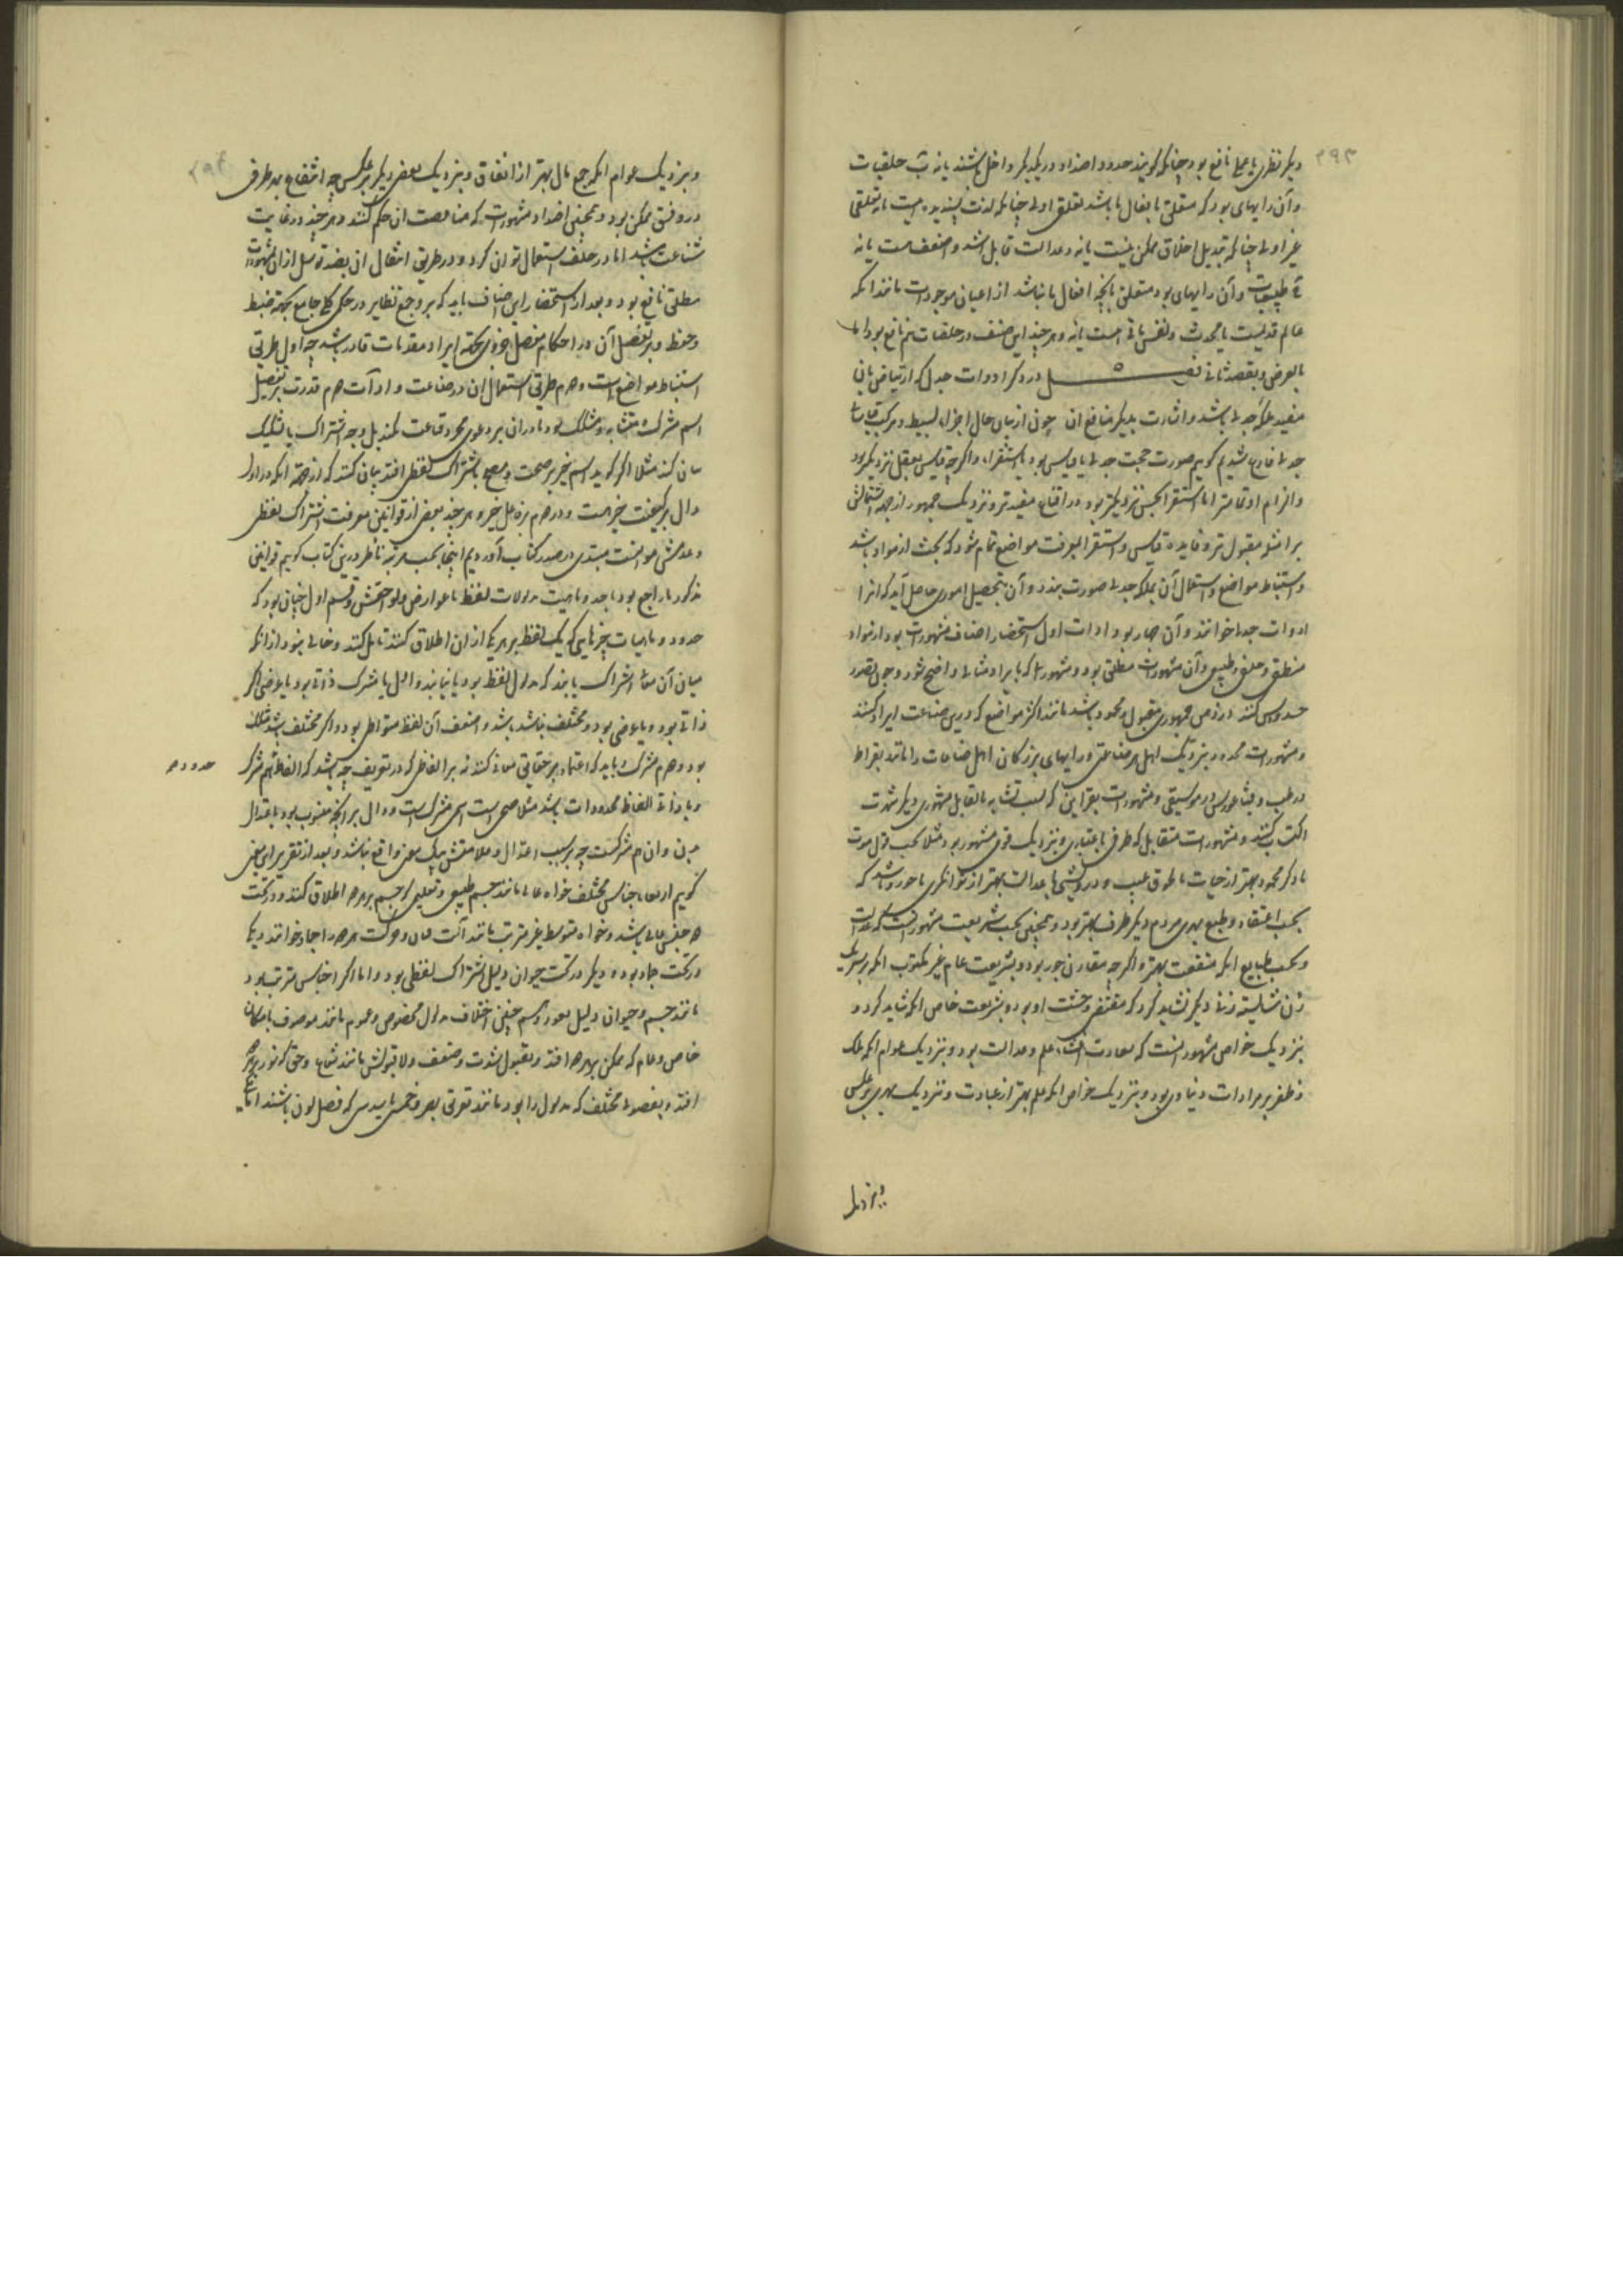 ۳۹۳
دیگر نظری یا عملی نافع بود چنانکه گویند حدود اضداد در یکدیگر داخل باشند یا نه ب خلقیات
و آن رایهای بود که متعلق بافعال ما باشد تعلقی اولی چنانکه لذت پسندیده هست یا نه تعلقی
غیر اولی چنانکه تبدیل اخلاق ممکن نیست یا نه و عدالت قابل اشد و اضعف هست یا نه
ج طبیعیات و آن رایهای بود متعلق بآنچه افعال ما نباشد از اعیان موجودات مانند آنکه
عالم قدیمست یا محدث و نفس باقی است یا نه و هر چند این صنف در خلقیات هم نافع بود اما
بالعرض و بقصد ثانی فصل در ذکر ادوات جدل که ارتیاض بآن
مفید ملکه جدلی باشد و اشارت بدیگر منافع آن چون از بیان حال اجزاء بسیط و مرکب قیاسات
جدلی فارغ شدیم گوییم صورت حجت جدلی یا قیاس بود یا استقراء و اگرچه قیاس بعقل نزدیکتر بود
و الزام او تمامتر اما استقرا بحس نزدیکتر بود و در اقناع مفیدتر و نزدیک جمهور از جهة اشتمالش
بر امثله مقبول‌تر و فایده قیاس و استقرا بمعرفت مواضع تمام شود که بحث از مواد باشد
و استنباط مواضع و استعمال آن بملکه جدلی صورت بندد و آن بتحصیل اموری حاصل آید که آنرا
ادوات جدل خوانند و آن چهار بود ادات اول استحضار اصناف مشهورات بود از مواد
منطقی و خلقی و طبیعی و آن مشهورات مطلق بود و مشهوراتی که بایراد مثالی واضح شود و چون تصور
حدودش کنند در ذهن جمهوری مقبول و محمود باشد مانند اکثر مواضع که درین صناعت ایراد کنند
و مشهورات محدود بنزدیک اهل هر صناعتی و رایهای بزرگان اهل صناعات را مانند بقراط
در طب و فیثاغورس در موسیقی و مشهورات بقراین که بسبب تشابه یا تقابل مشهوری دیگر شهرت
اکتساب کنند و مشهورات متقابل که هر طرفی باعتباری و بنزدیک قومی مشهور بود مثلا بحسب قول موت
با ذکر محمود بهتر از حیات با طوق عیب و درویشی با عدالت بهتر از توانگری با جور و باشد که
بحسب اعتقاد و طبع بیشتری مردم دیگر طرف بهتر بود و همچنین بحسب شریعت مشهور آنست که عدالت
و بحسب طبایع آنکه منفعت بهتر و اگرچه مقارن جور بود و بشریعت عام غیر مکتوب آنکه بر سر یک
زن شایسته زنی دیگر نشاید کرد که مقتضی وحشت او بود و بشریعت خاص آنکه شاید کرد و
بنزدیک خواص مشهور آنست که سعادت اقتناء علم و عدالت بود و بنزدیک عوام آنکه ملک
و ظفر بر مرادات دنیاوی بود و بنزدیک خواص آنکه علم بهتر از عبادت و بنزدیک بعضی بر عکس
و بنزدیک
۳۹۴
و بنزدیک عوام آنکه جمع مال بهتر از انفاق و بنزدیک بعضی دیگر بر عکس چه انتفاع بهر طرفی
در وقتی ممکن بود و همچنین اضداد مشهورات که بمناقضت آن حکم کنند و هر چند در غایت
شناعت باشد اما در خلف استعمال توان کرد و در طریق انتقال از بضد توسل از آن بمشهورات
مطلق نافع بود و بعد از استحضار این اصناف باید که بر وجه نظایر در حکمی کلی جامع بجهة ضبط
و حفظ و بر تفصیل آن در احکام مفصل جزوی بجهة ایراد مقدمات قادر باشد چه اول طریق
استنباط مواضع است و دوم طریق استعمال آن در صناعت و ادات دوم قدرت بر تفصیل
اسم مشترک و متشابه و مشکک بود و در آن بر دعوی مجرد قناعت نکند بل وجه اشتراک یا تشکیک
بیان کند مثلا اگر گوید اسم خیر بر صحت و مصحح باشتراک لفظی افتد بیان کند که از جهة آنکه در اول
دال بر کیفیت خیر است و در دوم بر فاعل خیر و هر چند بعضی از قوانین معرفت اشتراک لفظی
و عدمش مناسبت مبتدی در صدر کتاب آوردیم اینجا بحسب مرتبه ناظر درین کتاب گوییم قوانین
مذکور یا راجع بود باحد و ماهیت مدلولات لفظ یا عوارض و لواحقش و قسم اول چنان بود که
حدود و ماهیات چیزهایی که یک لفظ بر هر یکی از آن اطلاق کنند تامل کنند و خالی نبود از آنکه
میان آن معانی اشتراک یابند که مدلول لفظ بود یا نیابند و اول یا مشترک ذاتی بود یا عرضی اگر
ذاتی بود و یا عرضی بود و مختلف نباشد باشد و اضعف آن لفظ متواطی بود و اگر مختلف باشد مشکک
بود و دوم مشترک و باید که اعتماد بر حقایق معانی کنند نه بر الفاظی که در تعریف چه باشد که الفاظ هم مشترک
حدود هم
و یا ذاتی الفاظ محدودات باشد مثلا صحی اسمی مشترک است و دال بر آنچه منسوب بود باعتدال
بدن و آن هم مشترکست چه بر سبب اعتدال و علامتش بیک معنی واقع نباشد و بعد از تقریر این معنی
گوییم از معانی اجناس مختلف خواه عالی مانند جسم طبیعی و تعلیمی که جسم بر هر دو اطلاق کنند و در تحت
دو جنس عالی باشد و خواه متوسط غیر مترتب مانند آلت و حرکت هر دو را جماد خوانند و یکی
در تحت جماد بود و دیگر در تحت حیوان دلیل اشتراک لفظی بود و اما اگر اجناس مترتب بود
مانند جسم و حیوان دلیل نبود و همچنین اختلاف مدلول بخصوص و عموم مانند موصوف بامکان
خاص و عام که ممکن بر هر دو افتد و بقبول شدت و ضعف و لا قبولش مانند شعاع و حق که نور بر هر دو
افتد و بفصول مختلف که مدلول را بود مانند